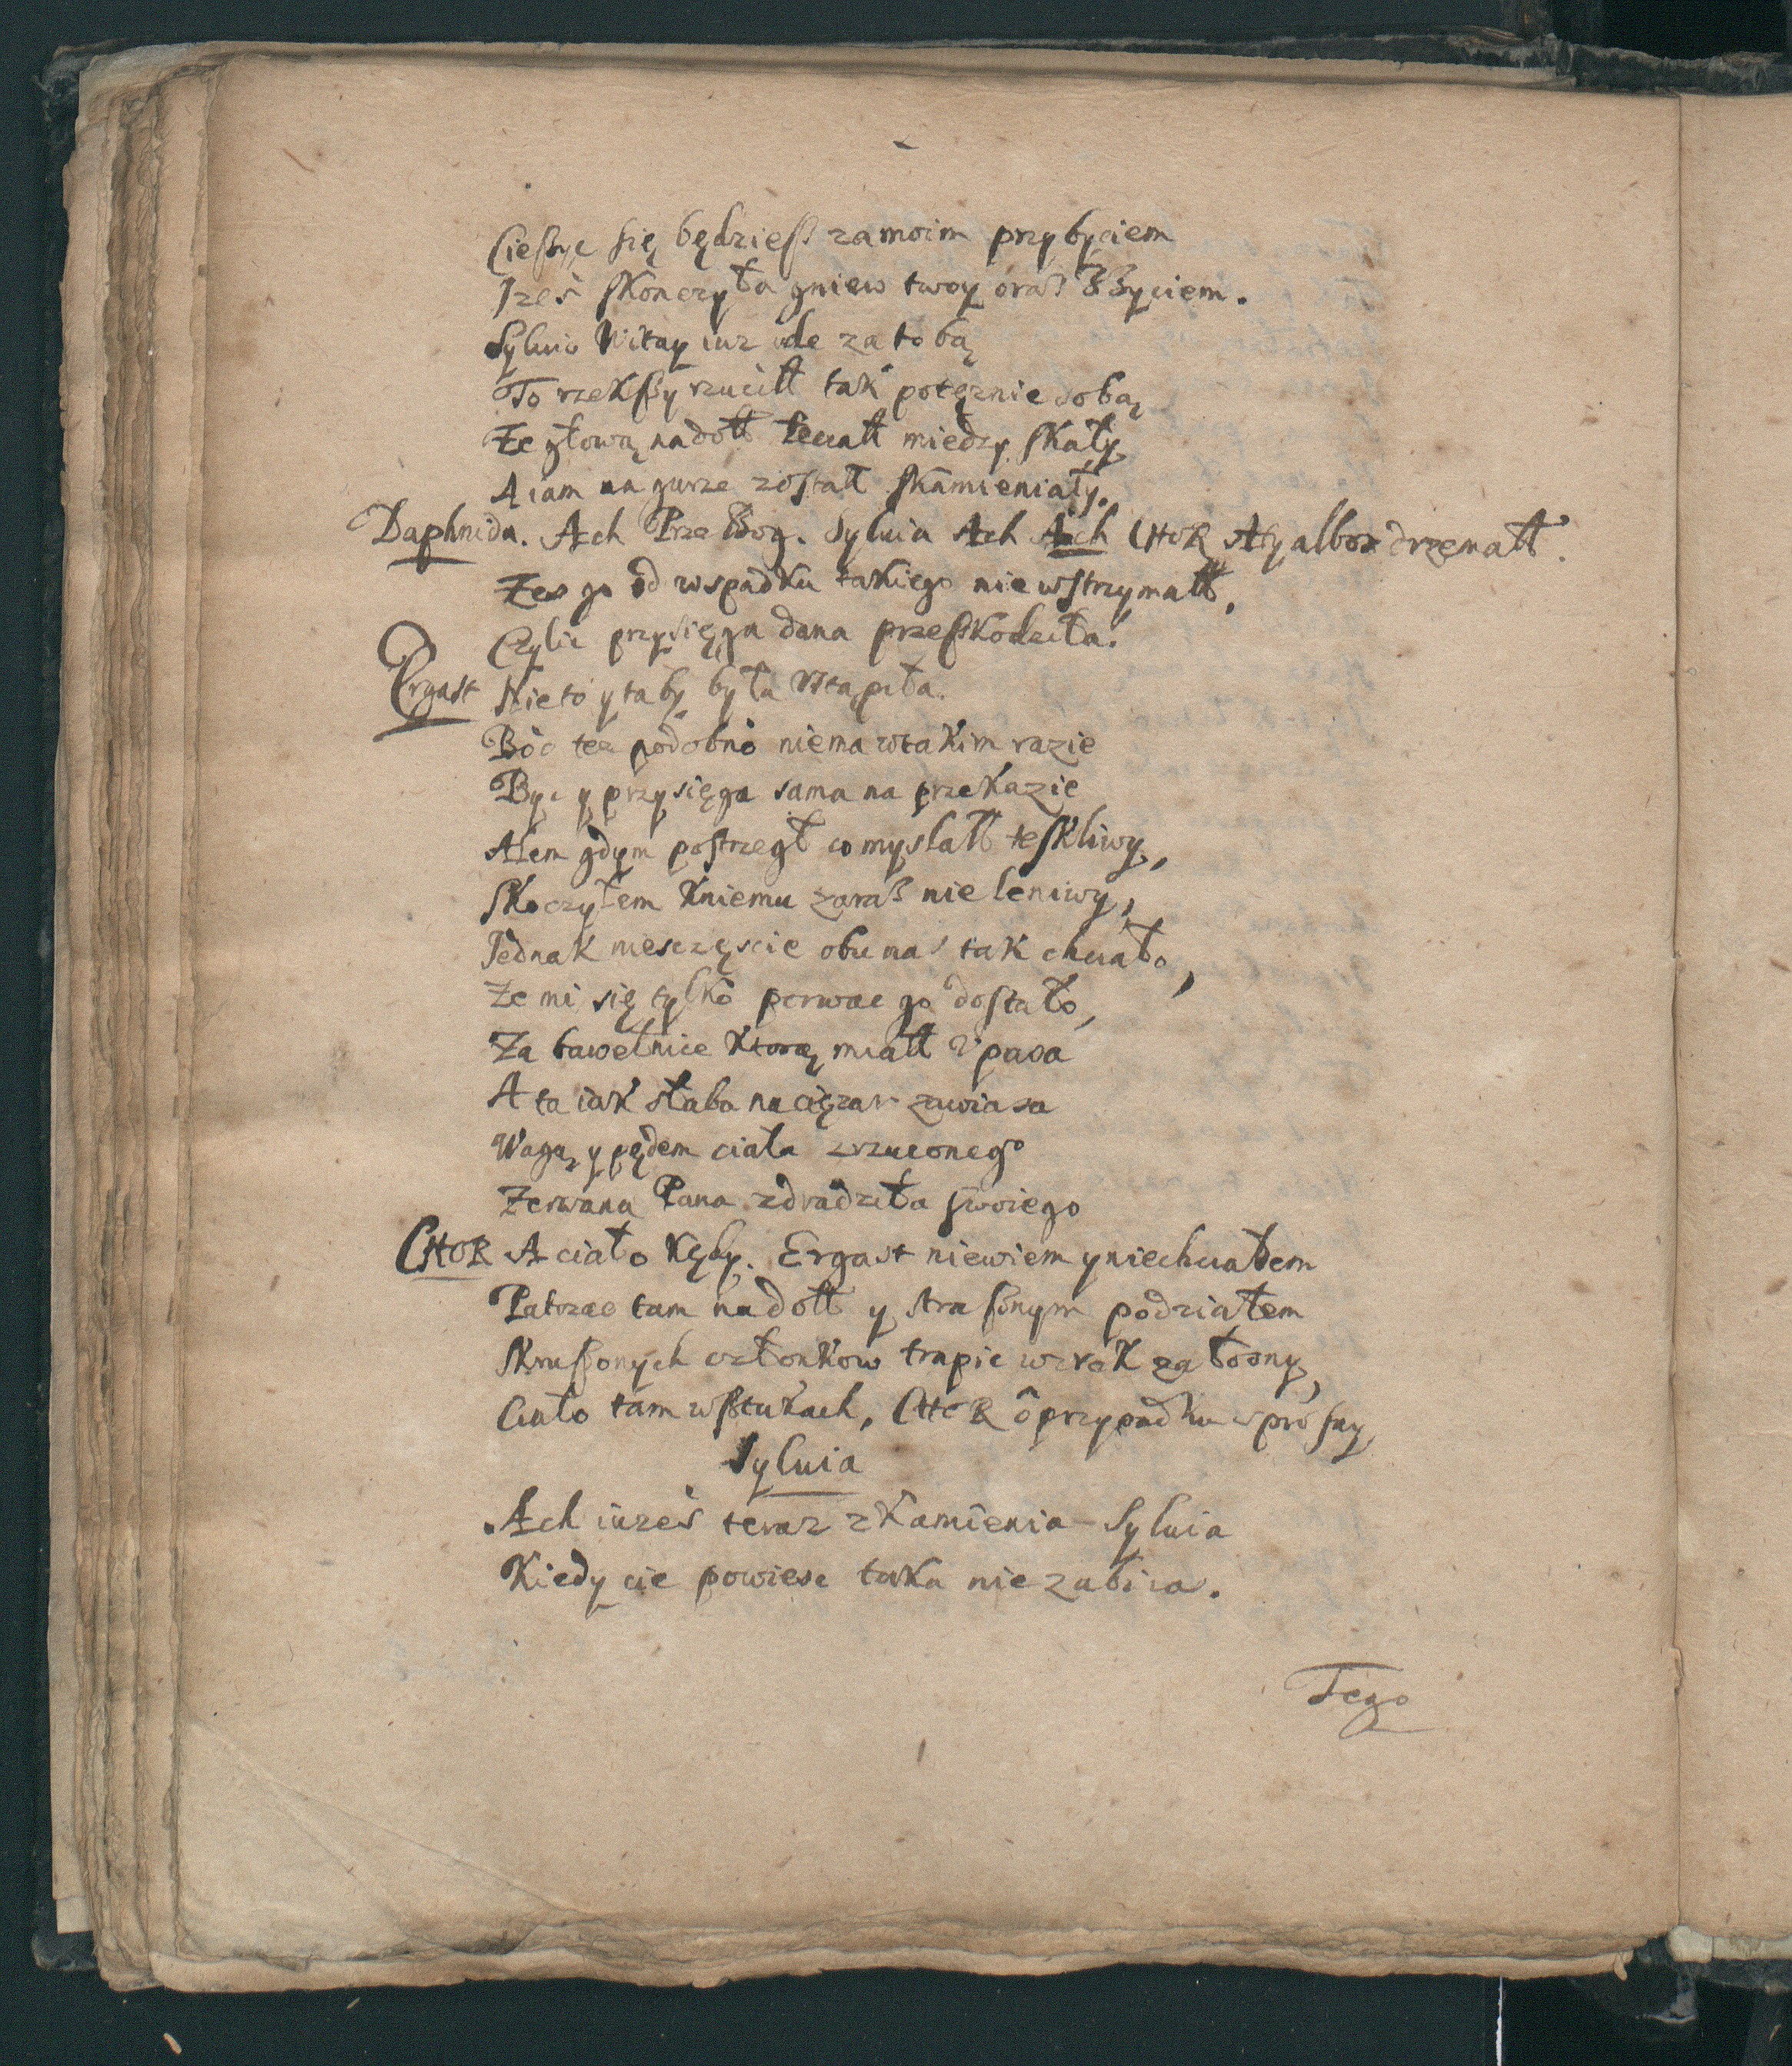 Cieszyc się będziesz zamoim przybyciem
Jześ skonczyła gniew twoy oraz Bzyciem.
Sylwio Witay iuz ide za tobą
To rzekszy rzucilł tak potęznie sobą
Ze głową nadołł leciałł miedzy skały
A iam na gurze został skamieniały.
Daphnida. Ach Prze Bog. Sylvia Ach Ach CHOR A ty albos drzemałł.
Zes go od wspadku takiego nie wstrzymałł,
Czylic przysięga dana przeszkodziła.
Ergast Nie to y taby była Vstąpiła.
Boc tez podobno niema wtakim razie
Byc y przysięga sama na przekazie
Alem gdym postrzegł co myslałł teskliwy,
Skoczyłem kniemu zarasz nie leniwy,
Jednak niesczęscie obu nas tak chciało,
Ze mi się tylko porwac go dostało,
Za bawełnice ktorą miałł v pasa
A ta iak słaba na cięzar zawiasa
Wagą y pędem ciała zrzuconego
Zerwana Pana zdradziła swoiego
CHOR A ciało kędy. Ergast niewiem y niechciałem
Patrzac tam nadołł y straszonym podziałem
Skruszonych członkow trapic wzrok załosny,
Ciało tam wsztukach, CHOR ô przypadku sprosny
Sylvia
Ach iuześ teraz z kamienia Sylvia
Kiedy cie powiesc taka nie zabiia.
Tego